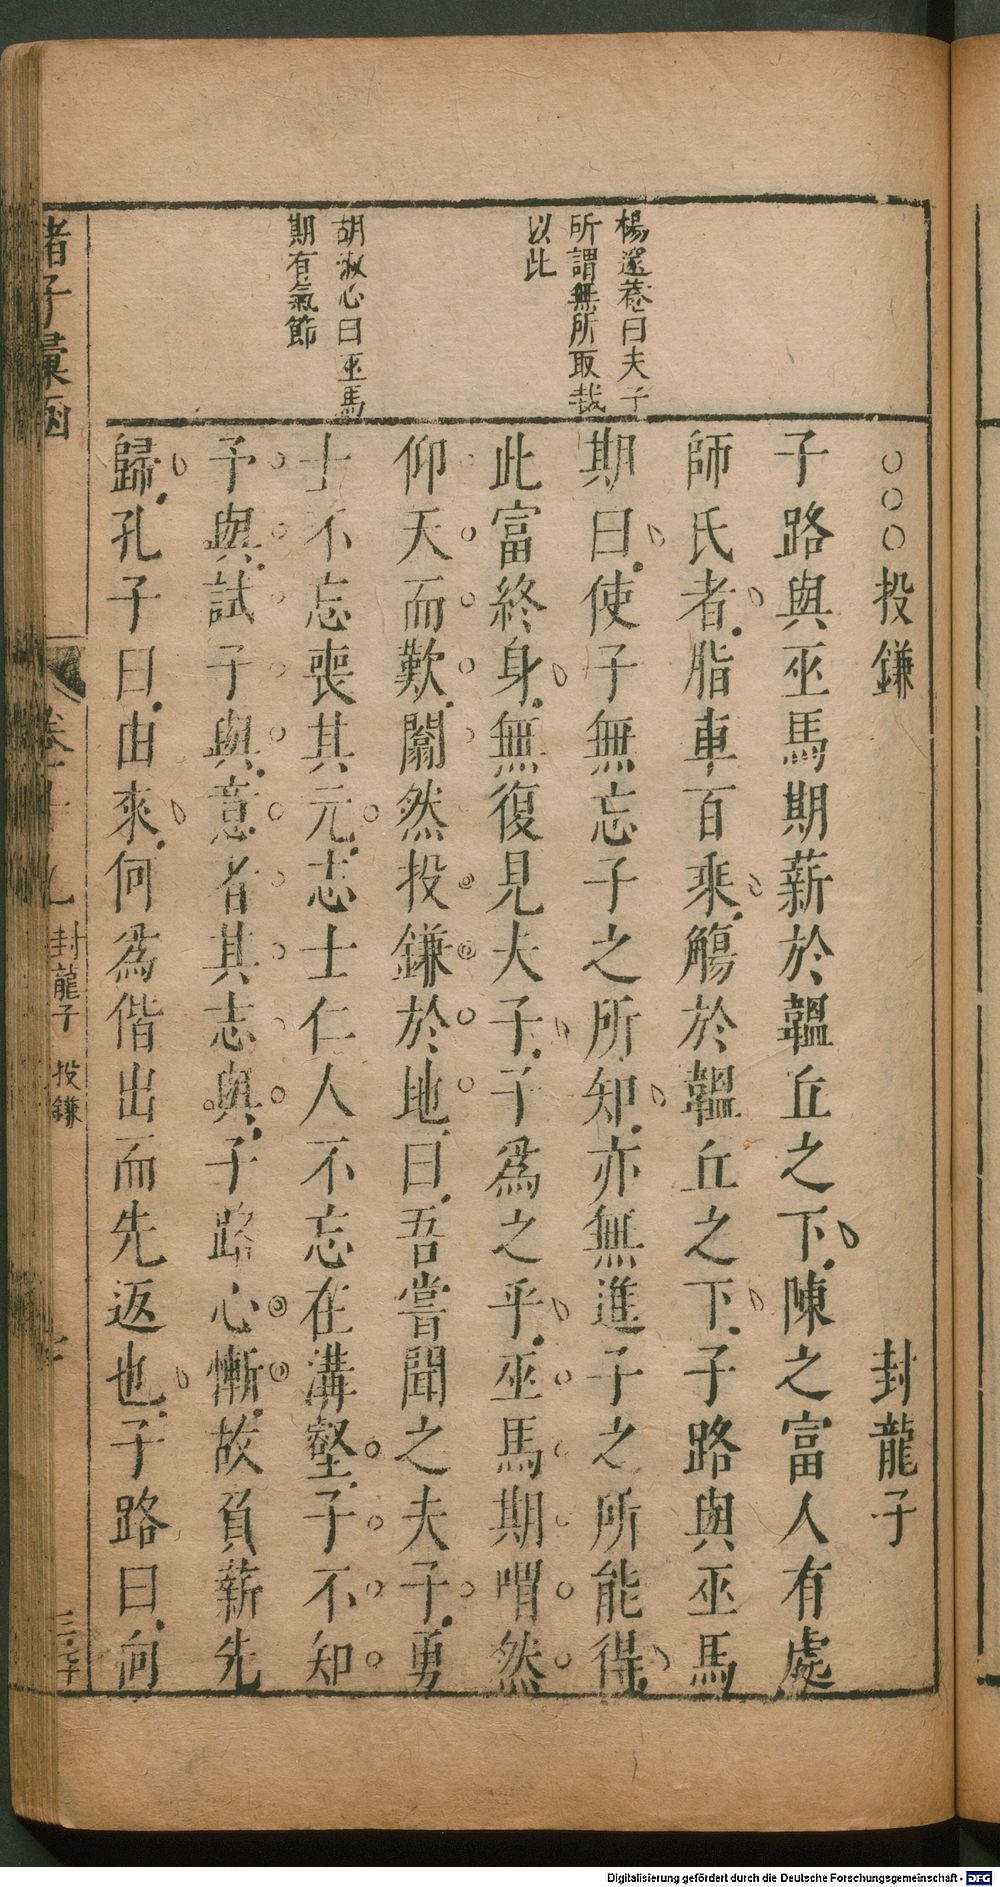 楊遂菴曰夫子
所謂無所取哉
以此
胡淑心曰巫馬
期有氣節
○○○投鎌 封龍子
子路與巫馬期薪於韞丘之下陳之富人有處
師氏者脂車百乘觴於韞丘之下子路與巫馬
期曰使子無忘子之所知亦無進子之所能得
此富終身無復見夫子子為之乎巫馬期喟然
仰天而歎闟然投鎌於地曰吾嘗聞之夫子勇
士不忘喪其元志士仁人不忘在溝壑子不知
予與試予與意者其志與子路心慚故負薪先
歸孔子曰由來何為偕出而先返也子路曰向
諸子彙函
卷二十九 封龍子 投鎌
Digitalisierung gefördert durch die Deutsche Forschungsgemeinschaft - DFG